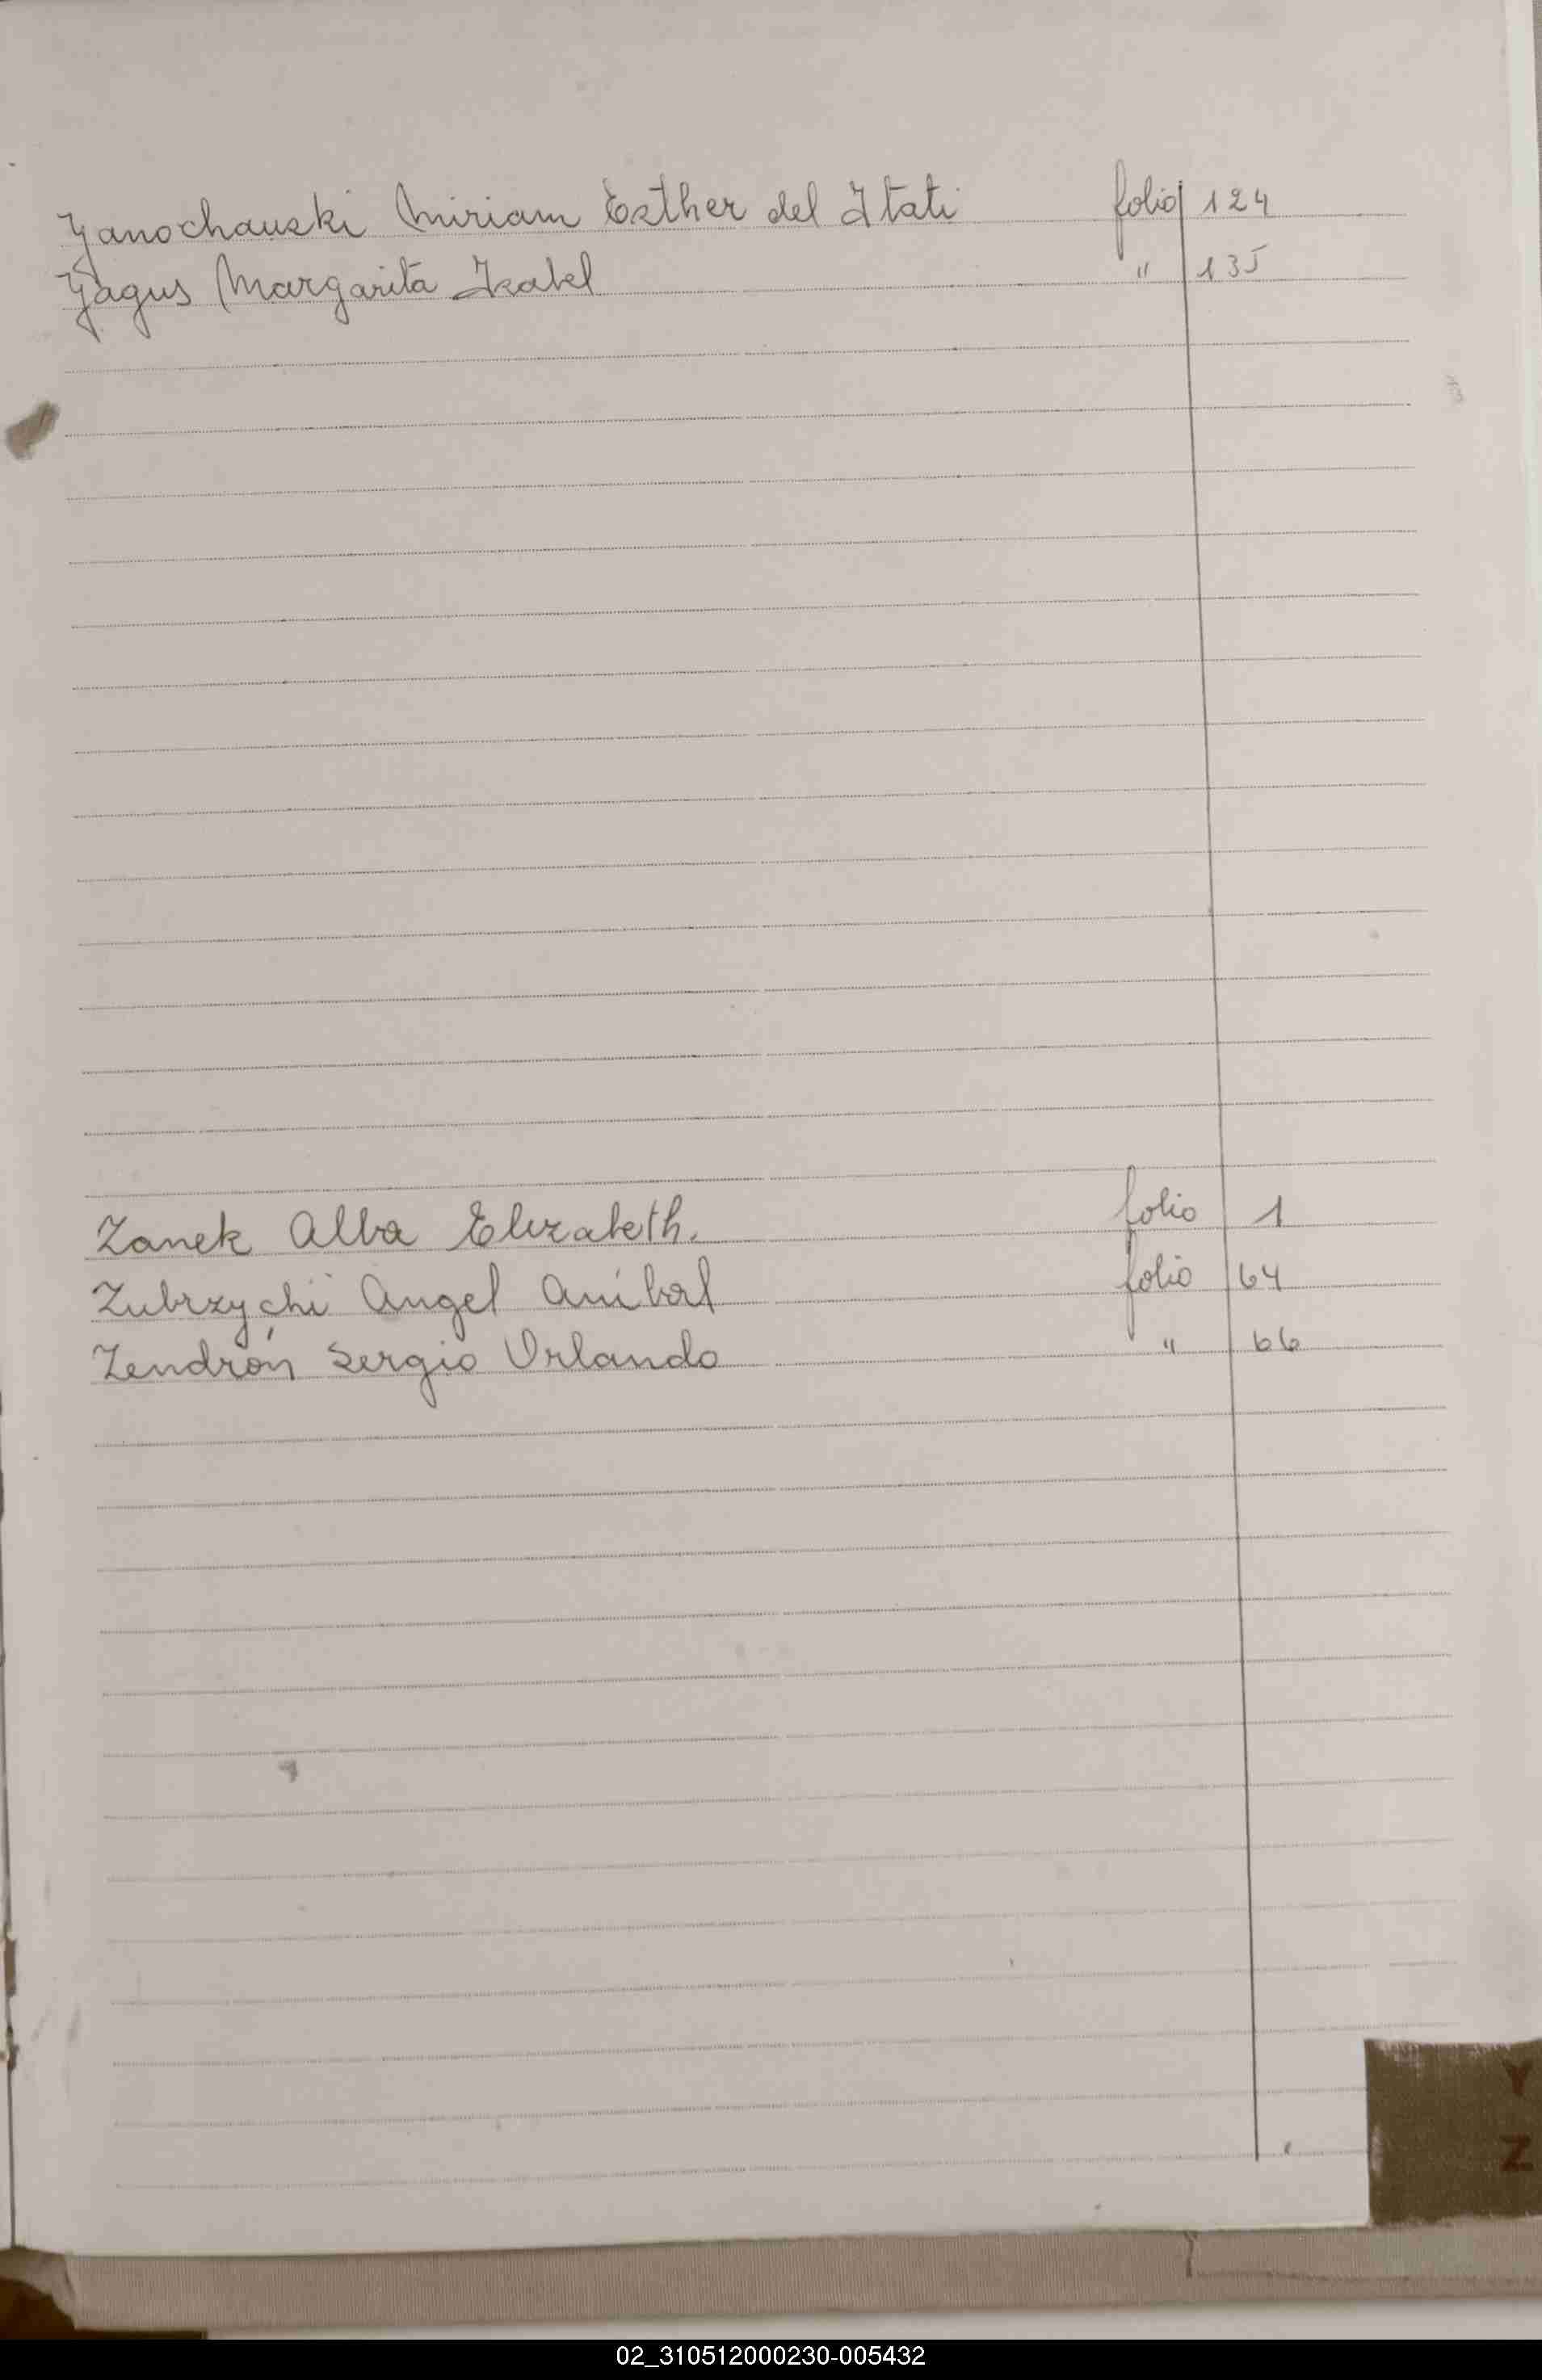 Yanochauski Miriam Esther del Itati folio 124
Yagus Margarita Isabel " 135
Zanek Alba Elizabeth. folio 1
Zubrzychi Angel Aníbal folio 64
Zendrón Sergio Orlando " 66
Y
Z
02_310512000230-005432